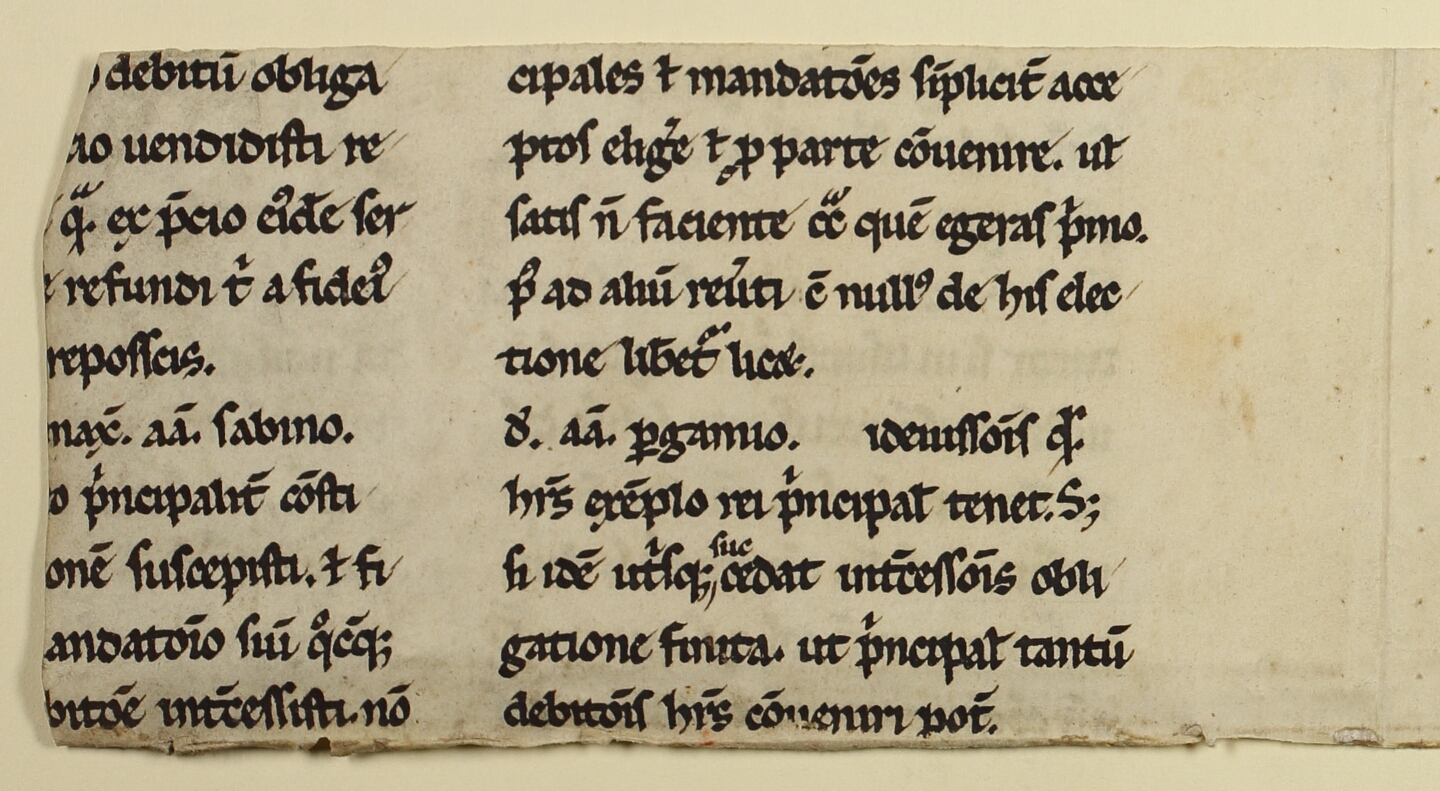 debitū obliga
uendidisti re
q̈. ex p̄cio eiꝰdē ser
refundi t̓ a fideı᷒
reposscis.
max̄. aā. sabino.
o p̓ncipalit̄ cōsti
onē suscepisti. ⁊ fi
andatoı̄o suū qͦcq̄;
bitōe int̄cessisti. nō
cipales ⁊ mandatōes sı̄plicit̄ acce
ptos elig̓e ⁊ ꝓ parte cōuenire. uł
satis n̄ faciente quē egeras p̓mo.
p̓ ad aliū reu̓ti c̄ nullꝰ de his elec
tione libet̄ licæ.
δ. aā. ꝑgamio. idemssoı̄s
hr̄s exēplo rei p̓ncipał tenet. S;
si idē ut̓sq; succedat int̄cessoı̄s obli
gatione finita. ut p̓ncipał tantū
debitoı̄s hr̄s cōueniri pot̄.